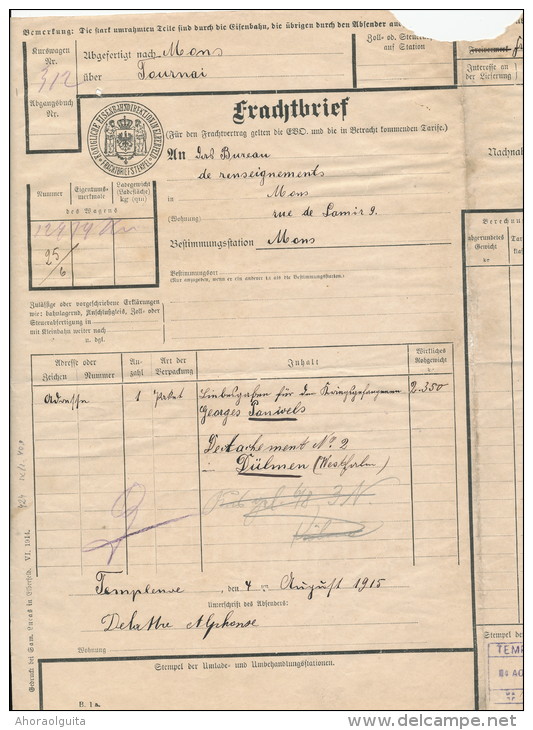 Bemerkung: Die stark umrahmten Teile sind durch die Eisenbahn, die übrigen durch den Absender
Kurswagen
Nr.
312
Abgefertigt nach Mons
über Tournai
Zoll- od.
auf Station
Interesse an
der Lieferung
Abgangsbuch
Nr.
Frachtbrief
(Für den Frachtvertrag gelten die EVO. und die in Betracht kommenden Tarife.)
FRACHTBRIEFSTEMPEL
An das Bureau
de renseignements
in Mons
(Wohnung) rue de Lamir 9.
Bestimmungsstation Mons
Nachna
Nummer
Eigentums-
merkmale
Ladegewicht
(Ladefläche)
kg (qm)
des Wagens
25/6
Bestimmungsort
Berechnu
abgerundetes
Gewicht
Zulässige oder vorgeschriebene Erklärungen
wie: bahnlagernd, Anschlußgleis, Zoll- oder
Steuerabfertigung in
mit Kleinbahn weiter nach
u. dgl.
Adresse oder
Zeichen Nummer
An-
zahl
Art der
Verpackung
Inhalt
Wirkliches
Rohgewicht
Adresse 1 Paket Liebesgaben für den Kriegsgefangenen 2.350
Georges Pauwels
Detachement No. 2
in Dülmen (Westfalen)
Templeuve, den 4 August 1915
Unterschrift des Absenders:
Delattre Alphonse
Wohnung
Stempel der
Stempel der Umlade- und Umbehandlungsstationen.
TEMP
Gedruckt bei Sam. Lucas in Elberfeld. VI. 1914.
II. 1 a.
Ahoraolguita
www.delcampe.net